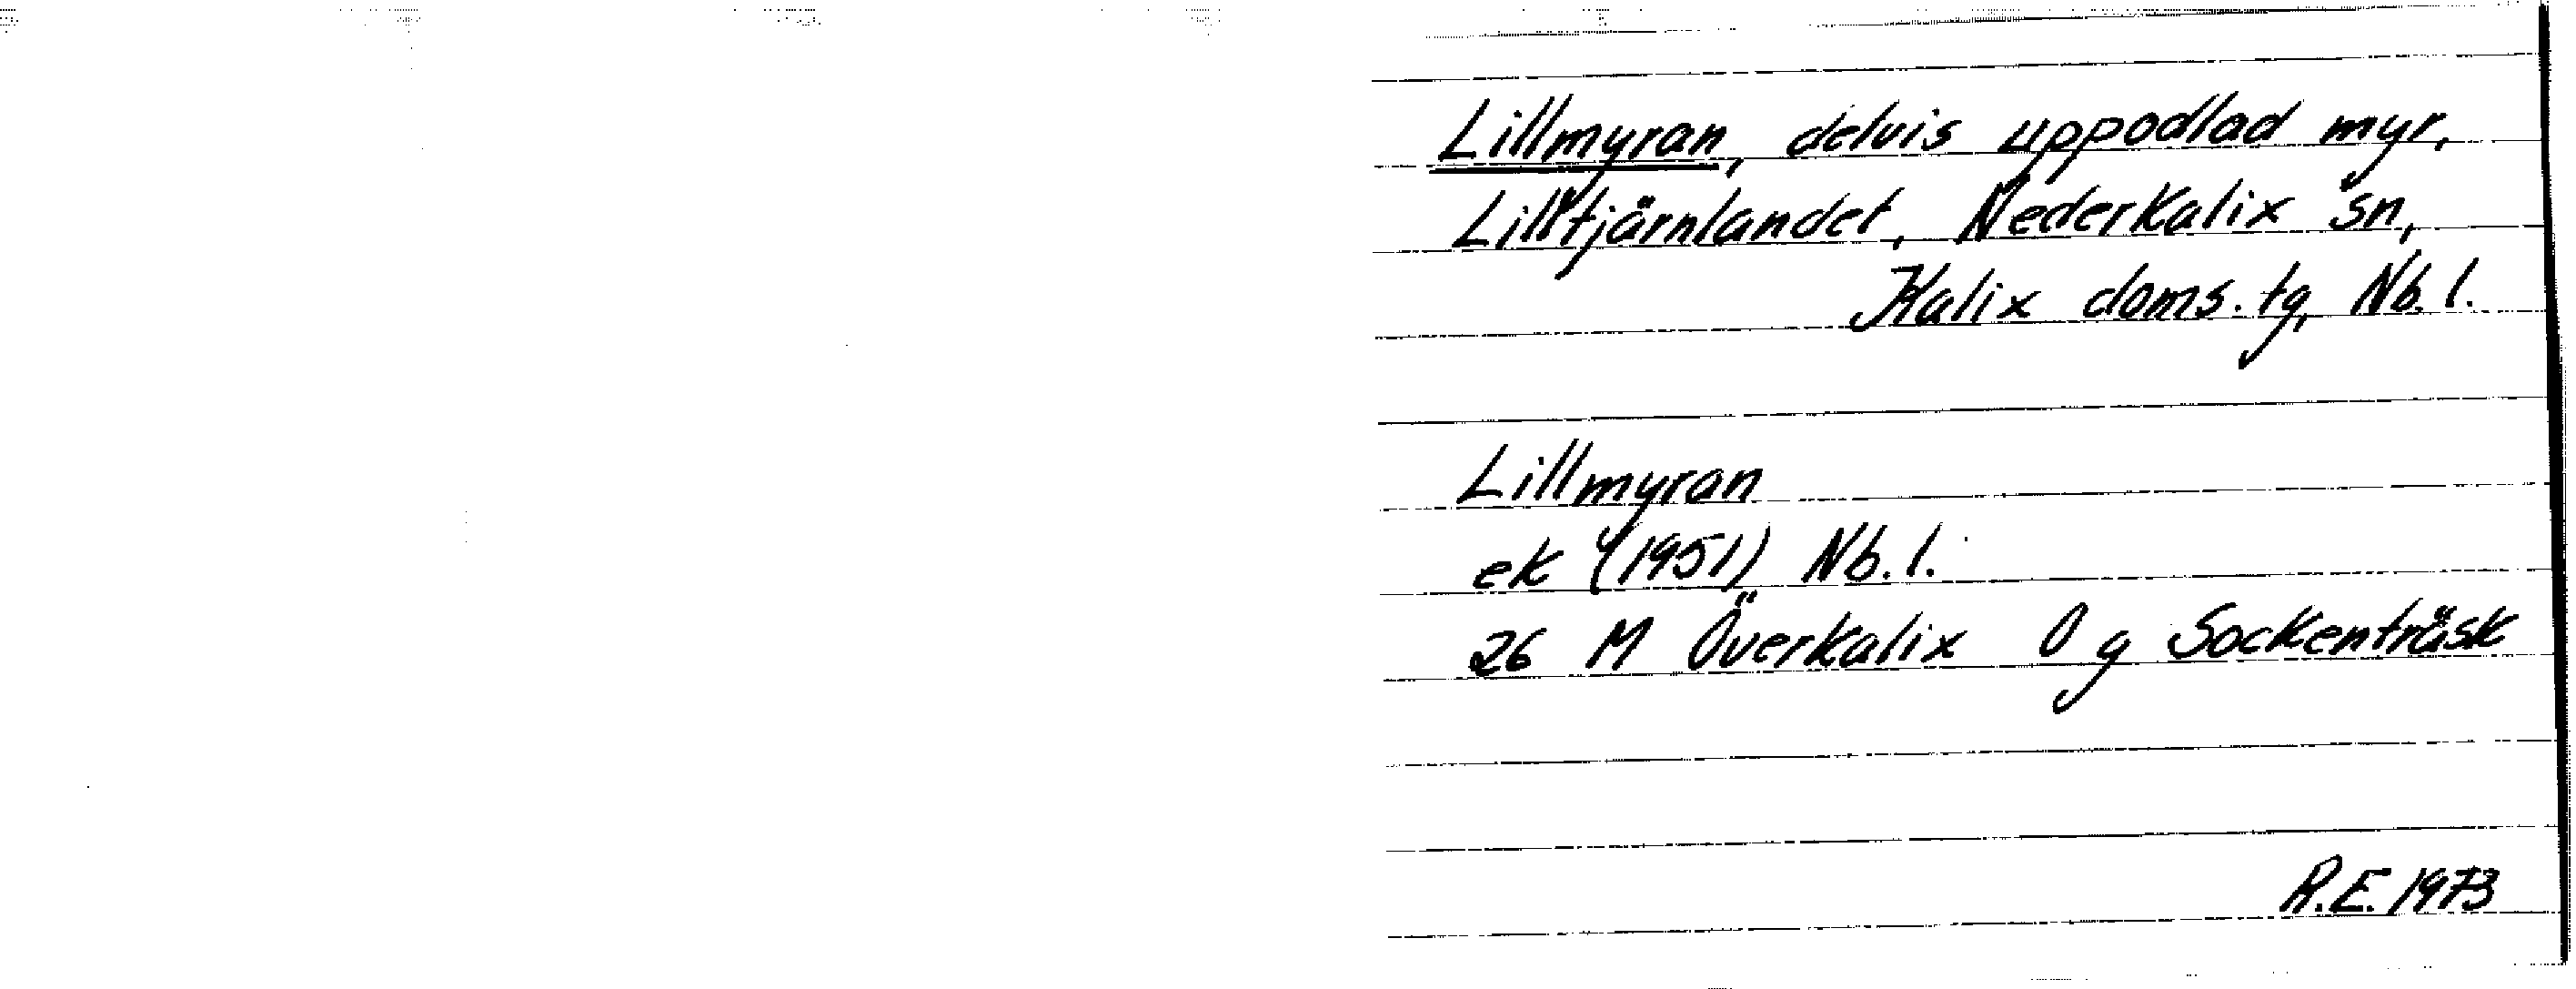 Lillmyran, delvis uppodlad myr,
Lilltjärnlandet, Nederkalix sn,
Kalix doms. tg, Nb. l.
Lillmyran
ek (1951) Nb. l.
26 M Överkalix O g Sockenträsk
R.E. 1973